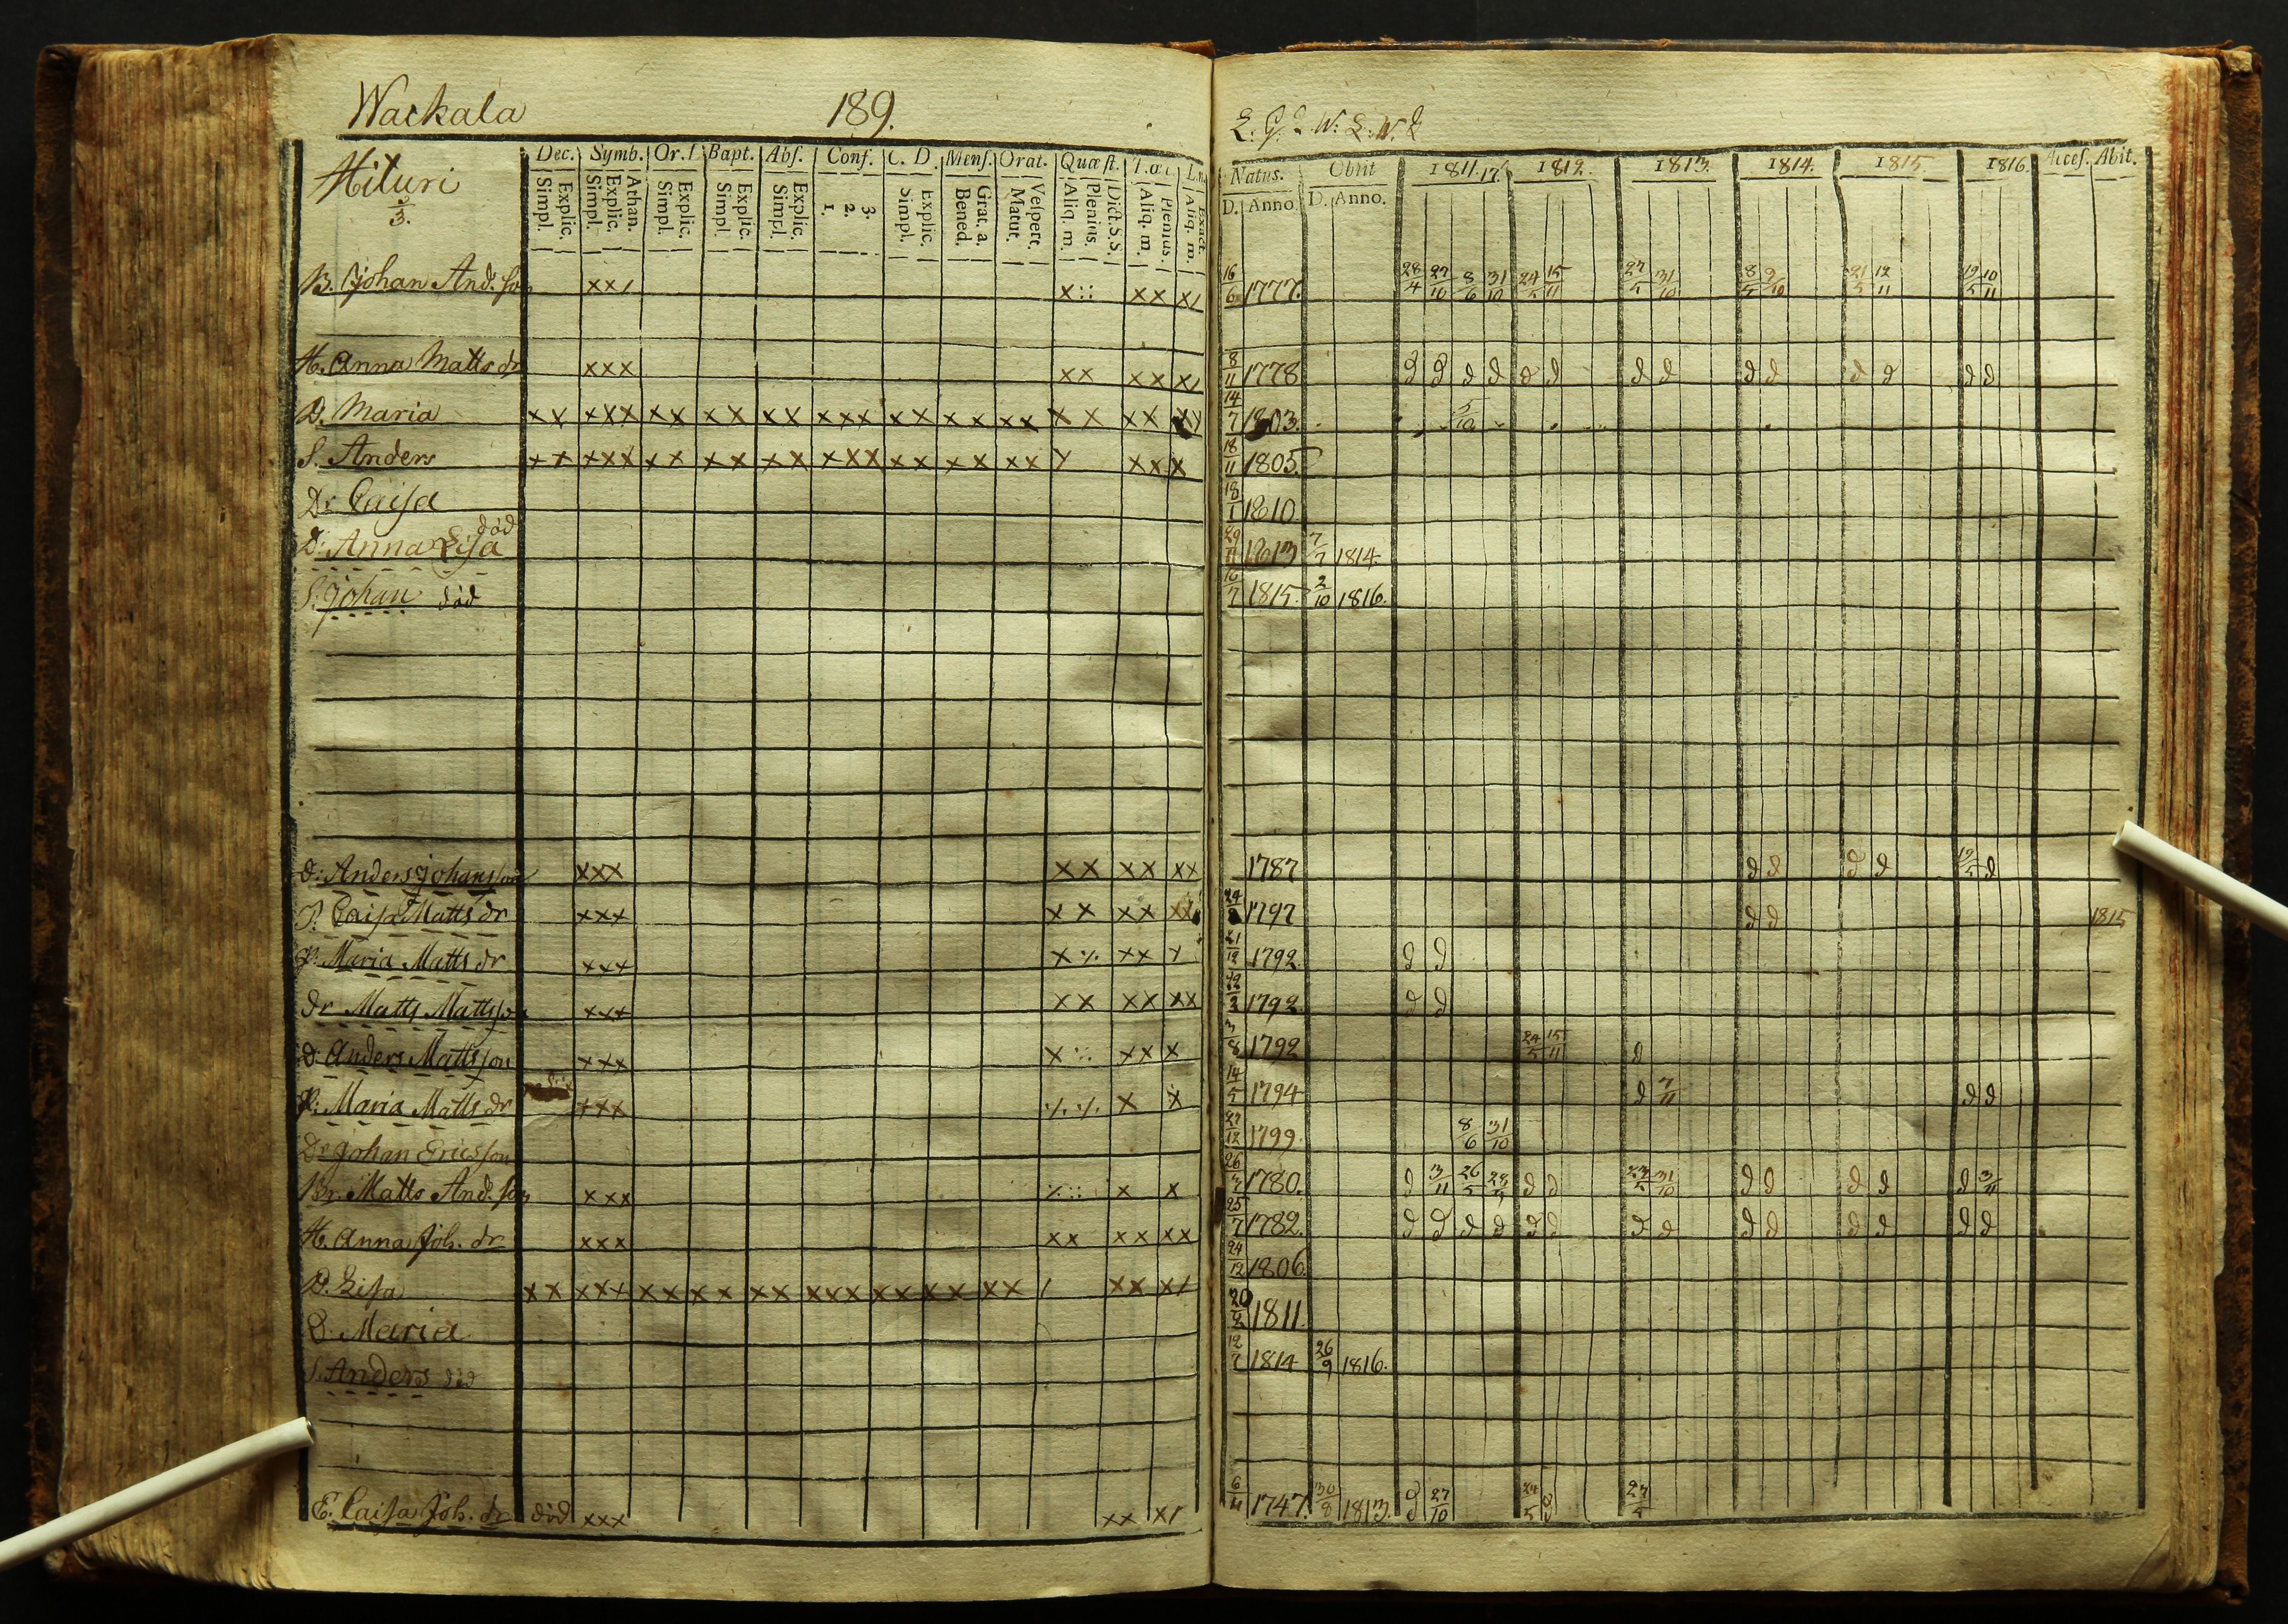 Wackala 189.
Hituri
3.
Dec. Symb. Or. Bapt. Abs. Conf. C. D. Mens. Orat. Quæst.
Simpl. Explic. Simpl. Explic. Athan. Simpl. Explic. Simpl. Explic. Simpl. Explic. 1. 2. 3. Simpl. Explic. Bened. Grat. a. Matut. Vespert. Aliq. m. Plenius. Dict. S.S. Aliq. m. Plenius. Aliq. m. Exact.
Natus. Obiit 1811.17. 1812. 1813. 1814. 1815. 1816. Acces. Abit.
D. Anno. D. Anno.
B. Johan And. son xx/ x:: xx x/ 16/6 1777. 28/4 27/10 8/6 31/10 24/5 15/11 27/5 31/10 8/5 9/10 21/5 12/11 19/5 10/11
H. Anna Matts dr xxx xx xx x/ 8/11 1778 d d d d d d d d d d d d d d
D. Maria xx xxx xx xx xx xxx xx xx xx xx xx 14/7 1803. 5/10
S. Anders xx xxx xx xx xx xxx xx xx xx x xx x 18/11 1805.
Dr Caisa 18/1 1810.
D: Anna Lisa död 1813 7/7 1814.
S. Johan död 1815. 2/10 1816.
d: Anders Johansson xxx xx xx xx 1787 d d d d 19/5 d
P. Caisa Matts dr xxx xx xx 1797 d d 1815
P: Maria Matts dr xxx x ∙/. xx x 21/12 1792 d d
dr Matts Mattsson xxx xx xx xx 1792 d d
d: Anders Mattsson xxx x ∙/. xx x 3/8 1792 24/5 15/11 d
P: Maria Matts dr xxx ∙/. ∙/. x x 14/5 1794 d 7/11 d d
Dr Johan Ericsson 27/12 1799. 8/6 31/10
Br. Matts And. son xxx x x 1780. d 3/11 26/5 d d 31/10 d d d d d 3/11
H. Anna Joh. dr xxx xx xx xx 25/7 1782. d d d d d d d d d d d d d d
D. Lisa xx xxx xx xx xx xxx xx xx xx / xx x/ 24/12 1806.
D. Maria 20/2 1811.
S. Anders död 12/7 1814 26/9 1816.
E. Caisa Joh. dr död xxx xx x/ 6/11 1747. 30/8 1813. d 27/10 24/5 d 27/5